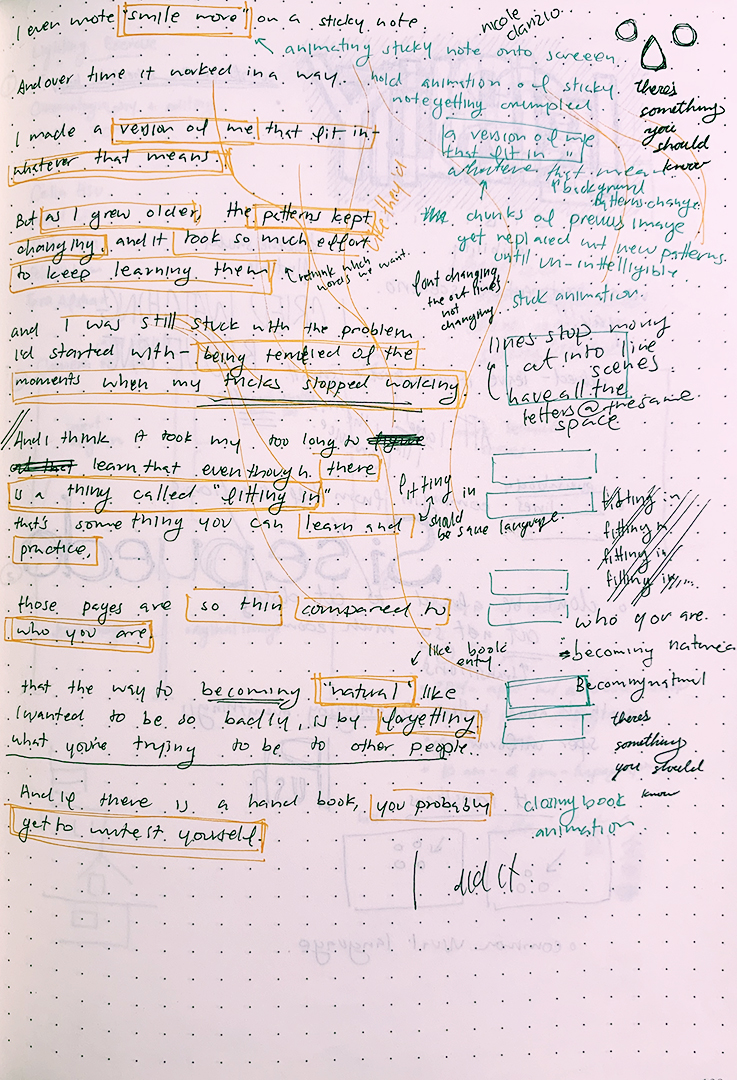 I even wrote "smile more" on a sticky note.
nicole
clarizio
animating sticky note onto screen
And over time it worked in a way.
hold animation of sticky
note getting crumpled
there's
something
you
should
know
I made a version of me that fit in -
whatever that means.
a version of me
that fit in "
whatever that means
background
patterns change
But as I grew older, the patterns kept
changing, and it took so much effort
to keep learning them
like they'd
rethink which
words we want.
chunks of previous image
get replaced w/ new patterns
until un-intelligible
font changing
the outlines
not
changing
stuck animation
and I was still stuck with the problem
I'd started with - being terrified of the
moments when my tricks stopped working.
lines stop moving
cut into line
scenes
have all the
letters @ the same
space
And I think it took my too long to
learn that even though there
is a thing called "fitting in"
that's something you can learn and
practice,
fitting in
should
be same language
fitting in
fitting in
fitting in
fitting in
those pages are so thin compared to
who you are
who you are.
becoming natural
like book
entry
that the way to becoming "natural" like
I wanted to be so badly, is by forgetting
what you're trying to be to other people.
Becoming natural
there's
something
you should
know
And if there is a hand book, you probably
get to write it yourself.
closing book
animation
I did it